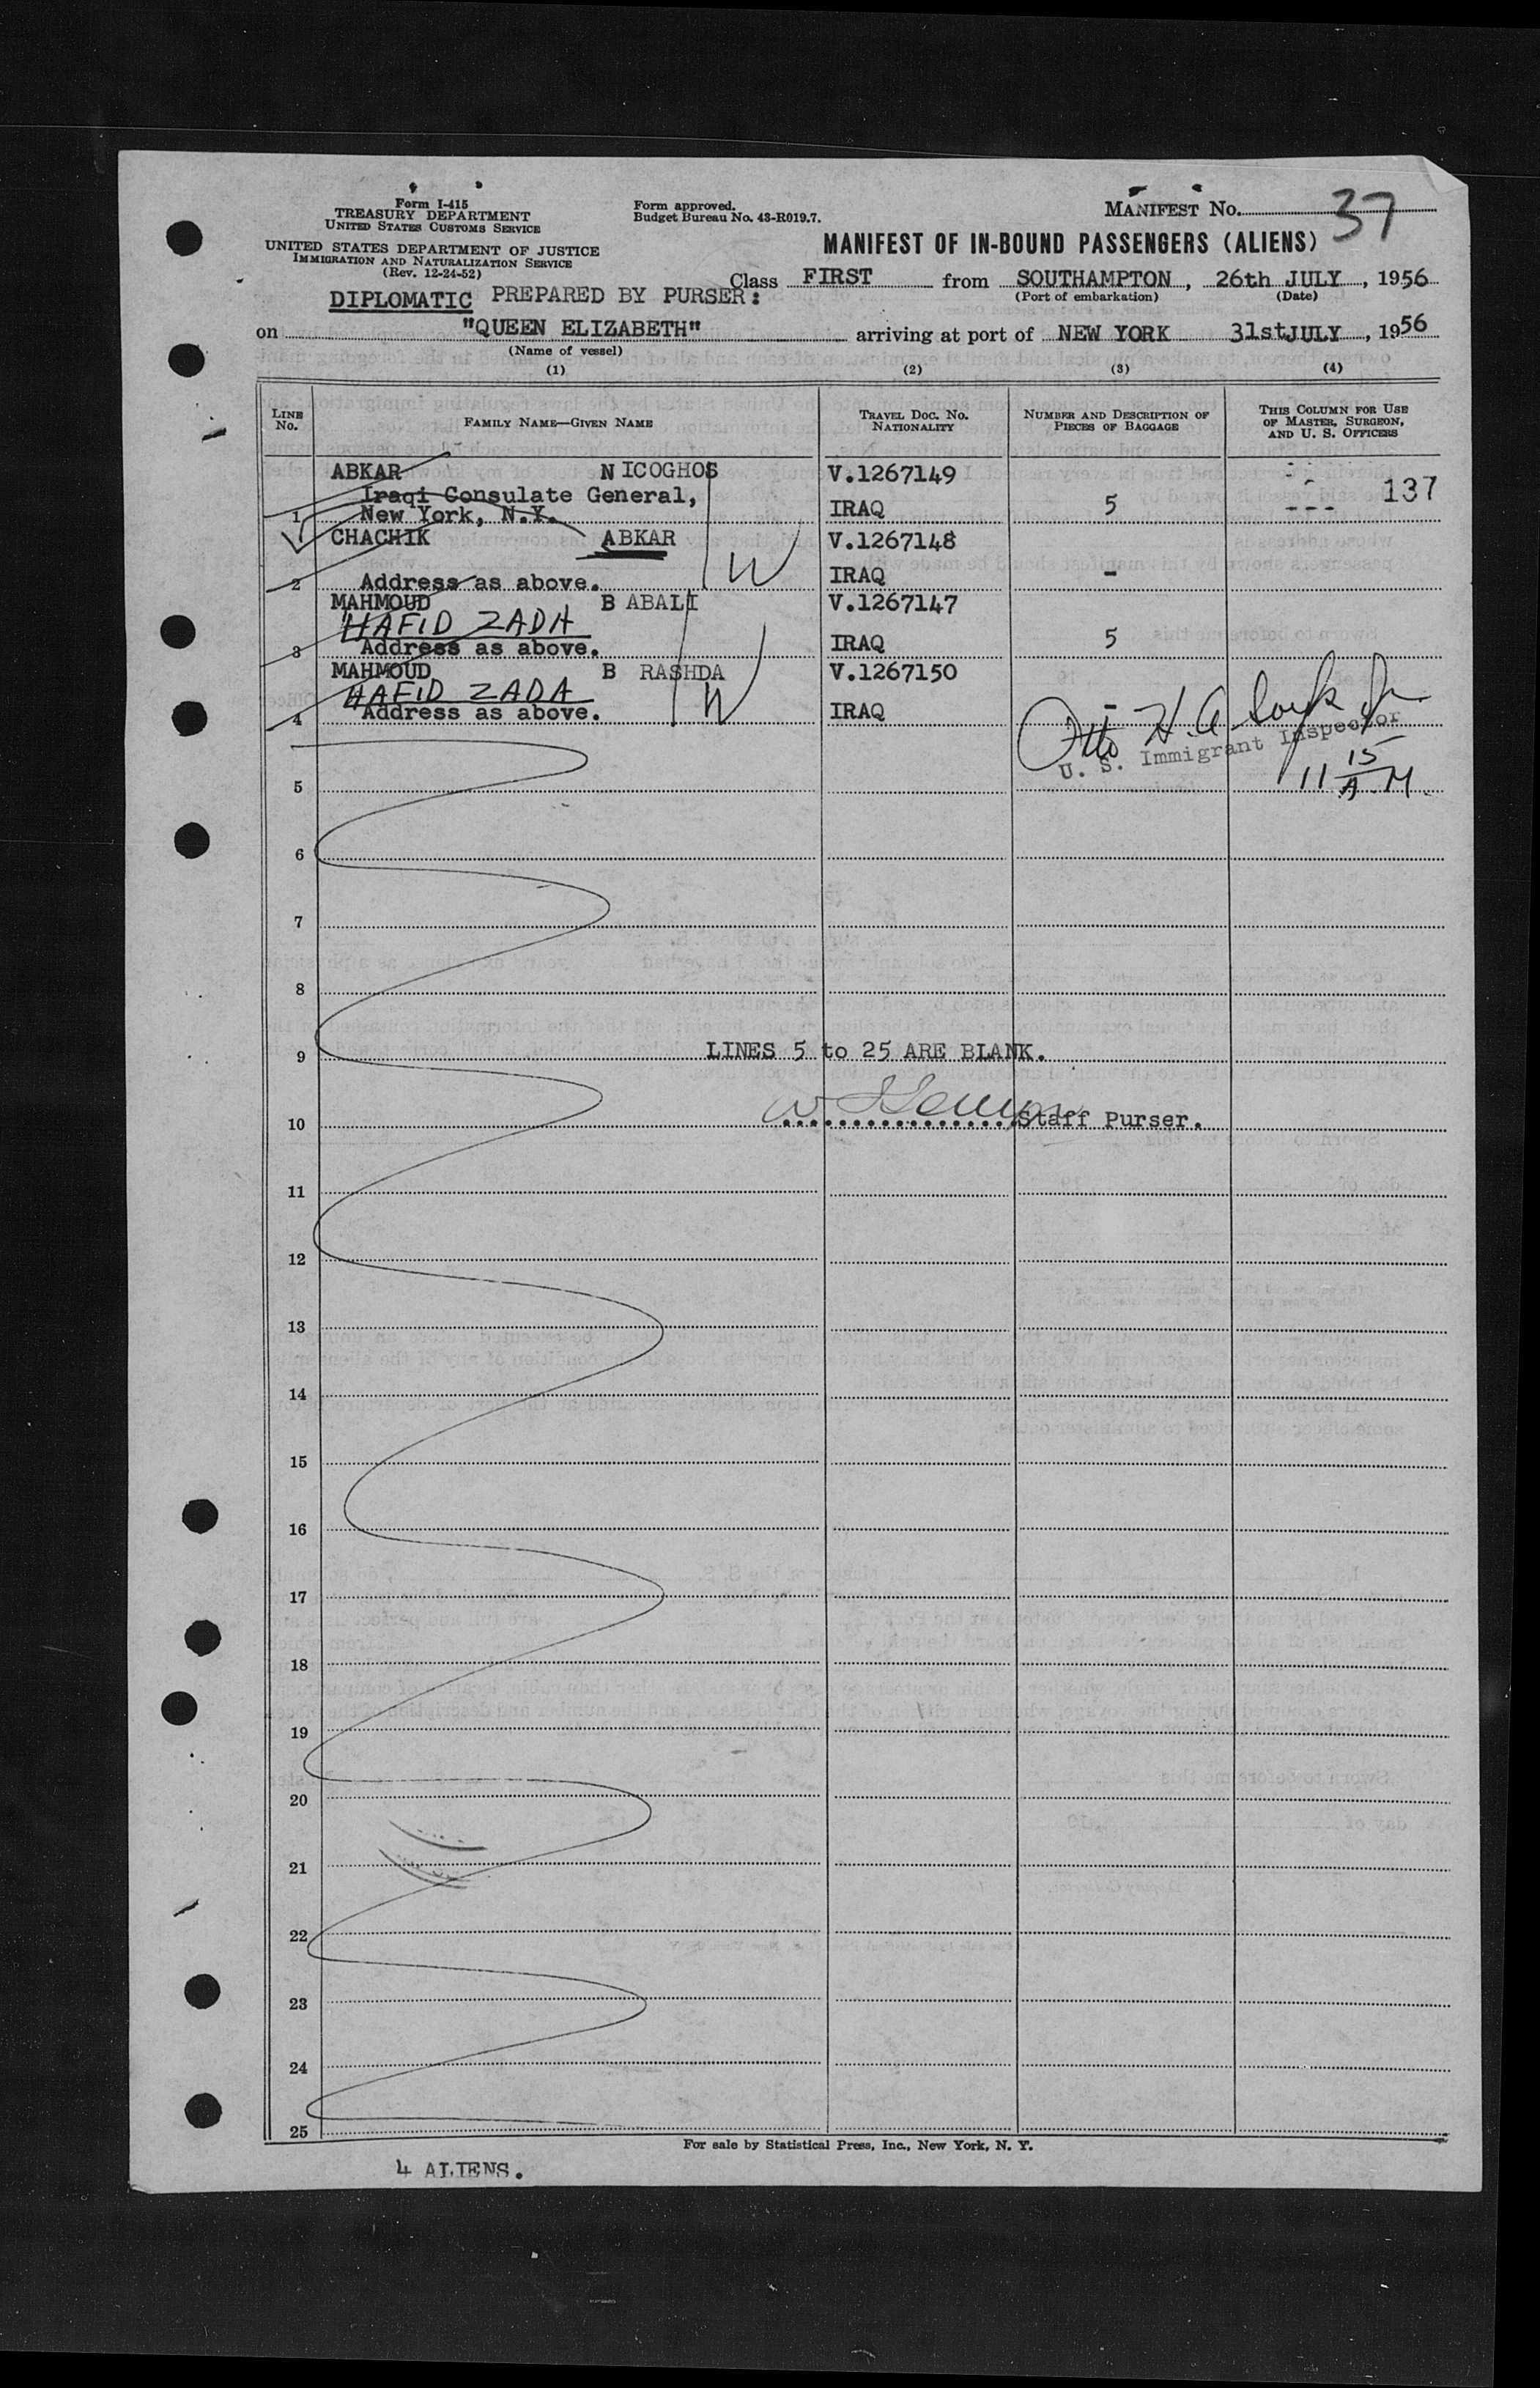 Form I-415
TREASURY DEPARTMENT
UNITED STATES CUSTOMS SERVICE
UNITED STATES DEPARTMENT OF JUSTICE
IMMIGRATION AND NATURALIZATION SERVICE
(Rev. 12-24-52)
Form approved.
Budget Bureau No. 43-R019.7.
MANIFEST No. 37
MANIFEST OF IN-BOUND PASSENGERS (ALIENS)
Class FIRST from SOUTHAMPTON, 26th JULY, 1956
(Port of embarkation) (Date)
DIPLOMATIC PREPARED BY PURSER:
on "QUEEN ELIZABETH" arriving at port of NEW YORK 31st JULY, 1956
(Name of vessel)
(1) (2) (3) (4)
LINE No. FAMILY NAME—GIVEN NAME TRAVEL DOC. No. NATIONALITY NUMBER AND DESCRIPTION OF PIECES OF BAGGAGE THIS COLUMN FOR USE OF MASTER, SURGEON, AND U. S. OFFICERS
ABKAR NICOGHOS V.1267149
Iraqi Consulate General, 137
1 New York, N.Y. IRAQ 5 ---
CHACHIK ABKAR V.1267148
W
2 Address as above. IRAQ -
MAHMOUD B ABALI V.1267147
HAFID ZADA
3 Address as above. IRAQ 5
MAHMOUD B RASHDA V.1267150
HAFID ZADA W
4 Address as above. IRAQ -
Otto H. A.
U. S. Immigrant Inspector
11 15 A.M.
5
6
7
8
9 LINES 5 to 25 ARE BLANK.
10 Staff Purser.
11
12
13
14
15
16
17
18
19
20
21
22
23
24
25
For sale by Statistical Press, Inc., New York, N. Y.
4 ALIENS.